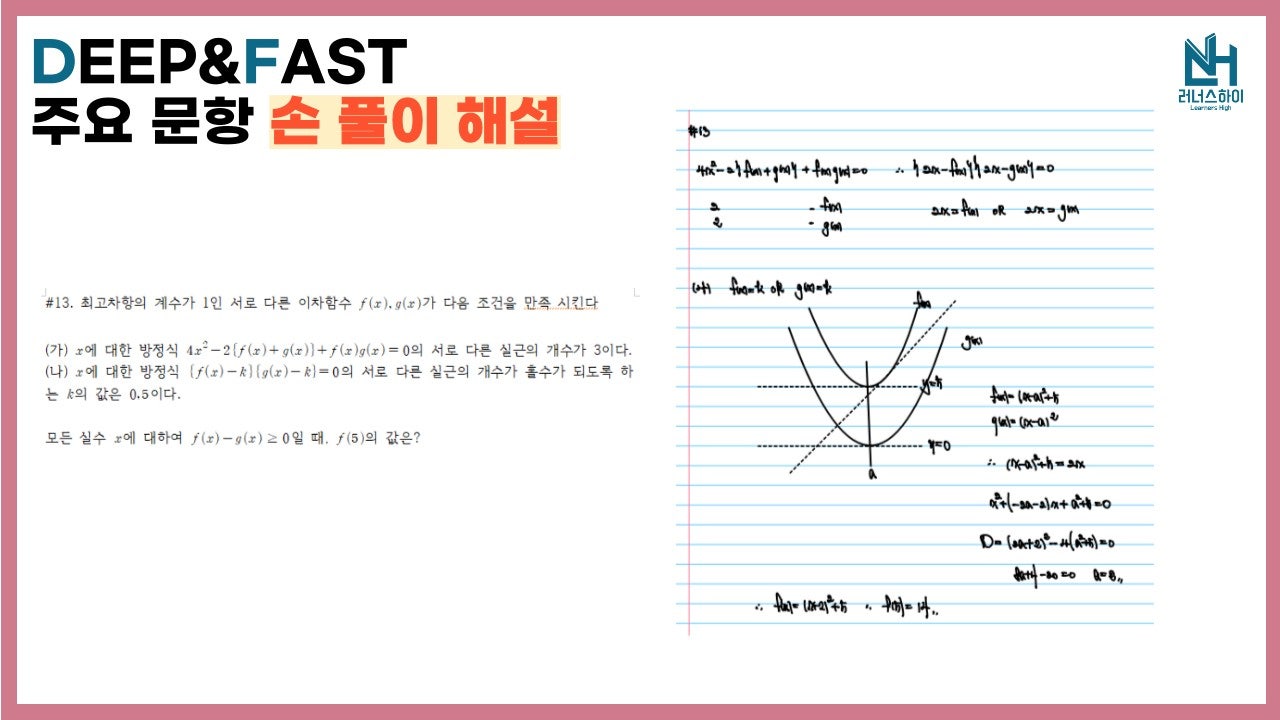 DEEP&FAST
주요 문항 손 풀이 해설
러너스하이
Learners High
#13. 최고차항의 계수가 1인 서로 다른 이차함수 f(x), g(x)가 다음 조건을 만족 시킨다
(가) x에 대한 방정식 4x²-2{f(x)+g(x)}+f(x)g(x)=0의 서로 다른 실근의 개수가 3이다.
(나) x에 대한 방정식 {f(x)-k}{g(x)-k}=0의 서로 다른 실근의 개수가 홀수가 되도록 하
는 k의 값은 0.5이다.
모든 실수 x에 대하여 f(x)-g(x)≥0일 때. f(5)의 값은?
#13
4x²-2{f(x)+g(x)}+f(x)g(x)=0 ∴ {2x-f(x)}{2x-g(x)}=0
2 - f(x)
2 - g(x)
2x=f(x) or 2x=g(x)
(나) f(x)=k or g(x)=k
f(x)
g(x)
y=5
y=0
a
f(x)=(x-a)²+5
g(x)=(x-a)²
∴ (x-a)²+5=2x
x²+(-2a-2)x+a²+5=0
D=(2a+2)²-4(a²+5)=0
8a+4-20=0
∴ f(x)=(x-2)²+5 ∴ f(5)=14